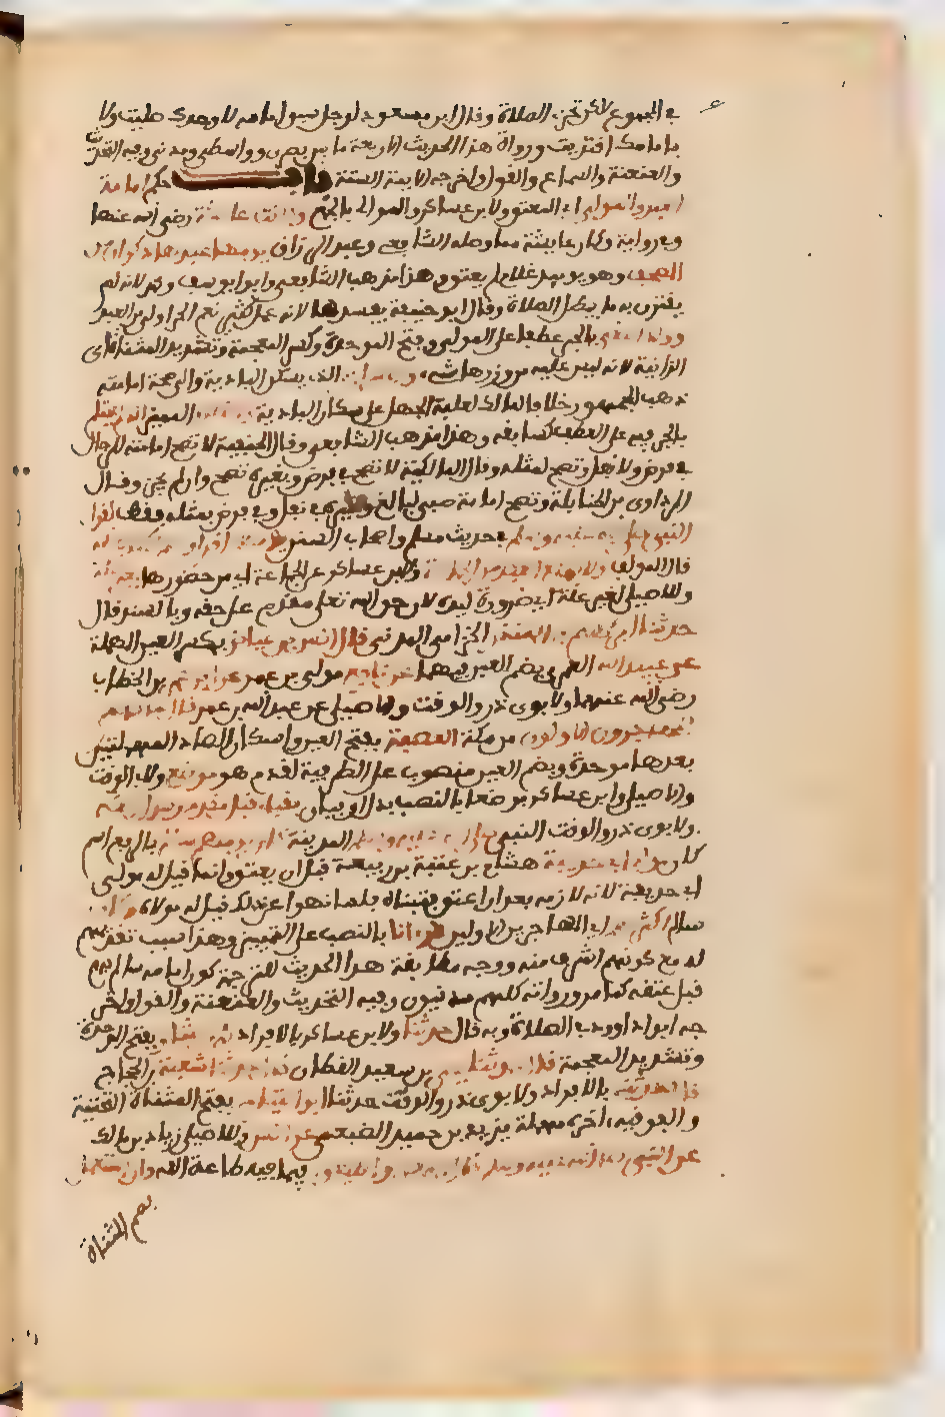 في المجموع لكن تجزئ الصلاة وقال ابن مسعود لرجل سبق امامه لا وحدك صليت ولا
بامامك اقتديت ورواة هذا الحديث الاربعة ما بين بصري وواسطي ومدني وفيه التحديث
والعنعنة والسماع والقول واخرجه الايمة الستة باب حكم امامة
العبد والمولى اي المعتق ولابن عساكر والموالي بالجمع وكانت عائشة رضي الله عنها
وفي رواية وكان عايشة مما وصله الشافعي وعبد الرزاق يومها عبدها ذكوان من
المصحف وهو يوميد غلام لم يعتق وهذا مذهب الشافعي وابو يوسف ومحمد لانه لم
يقترن به ما يبطل الصلاة وقال ابو حنيفة يفسدها لانه عمل كثير نعم الحر اولى من العبد
وولد البغي بالجر عطفا على المولى وفتح الموحدة وكسر المعجمة وتشديد المثناة اي
الزانية لانه ليس عليه من وزرها شيء والاعرابي الذي يسكن البادية والى صحة امامته
ذهب الجمهور خلافا لمالك لغلبة الجهل على سكان البادية والغلام المميز الذي لم يحتلم
بالجر فيه على العطف كسابقه وهذا مذهب الشافعي وقال الحنفية لا تصح امامته للرجال
في فرض ولا نفل وتصح لمثله وقال المالكية لا تصح في فرض وبغيره تصح وان لم تجز وقال
المرداوي من الحنابلة وتصح امامة صبي لبالغ وغيره في نفل وفي فرض بمثله فقط لقول
النبي صلى الله عليه وسلم في حديث مسلم واصحاب السنن يومهم اقراهم لكتاب الله
قال المولف ولا يمنع العبد من الجماعة ولابن عساكر عن الجماعة اي من حضورها بغير علة
وللاصيلي لغير علة اي ضرورة لسيده لان حق الله تعلى مقدم على حقه وبالسند قال
حدثنا ابراهيم بن المنذر الحزامي المدني قال انس بن عياض بكسر العين المهملة
عن عبيد الله العمري بضم العين فيهما عن نافع مولى بن عمر عن ابن عمر بن الخطاب
رضي الله عنهما ولابوي ذر والوقت والاصيلي عن عبد الله بن عمر قال لما قدم
المهاجرون الاولون من مكة العصبة بفتح العين واسكان الصاد المهملتين
بعدها موحدة وبضم العين منصوب على الظرفية لقدم هو موضع ولابي الوقت
والاصيلي وابن عساكر موضعا بالنصب بدل او بيان بقباء قبل مقدم رسول الله
ولابوي ذر والوقت النبي صلى الله عليه وسلم المدينة كان يومهم سالم بالرفع اسم
كان مولى ابي حذيفة هشام بن عتبة بن ربيعة قبل ان يعتق وانما قيل له مولى
ابي حذيفة لانه لازمه بعد ان اعتق فتبناه فلما نهوا عن ذلك قيل له مولاه وكان
سالم اكثرهم اي المهاجرين الاولين قرءانا بالنصب على التمييز وهذا سبب تقديمهم
له مع كونهم اشرف منه ووجه مطابقة هذا الحديث للترجمة كون امامة سالم بهم
قبل عتقه كما مر ورواته كلهم مدنيون وفيه التحديث والعنعنة والقول واخر
جه ابو داوود في الصلاة وبه قال حدثنا ولابن عساكر بالافراد محمد بن بشار بفتح الموحدة
وتشديد المعجمة قال حدثنا يحيى بن سعيد القطان قال حدثنا شعبة بن الحجاج
قال حدثني بالافراد ولابوي ذر والوقت حدثنا ابو التياح بفتح المثناة الفوقية
والتحتية اخره مهملة يزيد بن حميد الضبعي عن انس وللاصيلي زيادة بن مالك
عن النبي صلى الله عليه وسلم قال اسمعوا واطيعوا فيما فيه طاعة الله وان استعمل
بضم المثناة